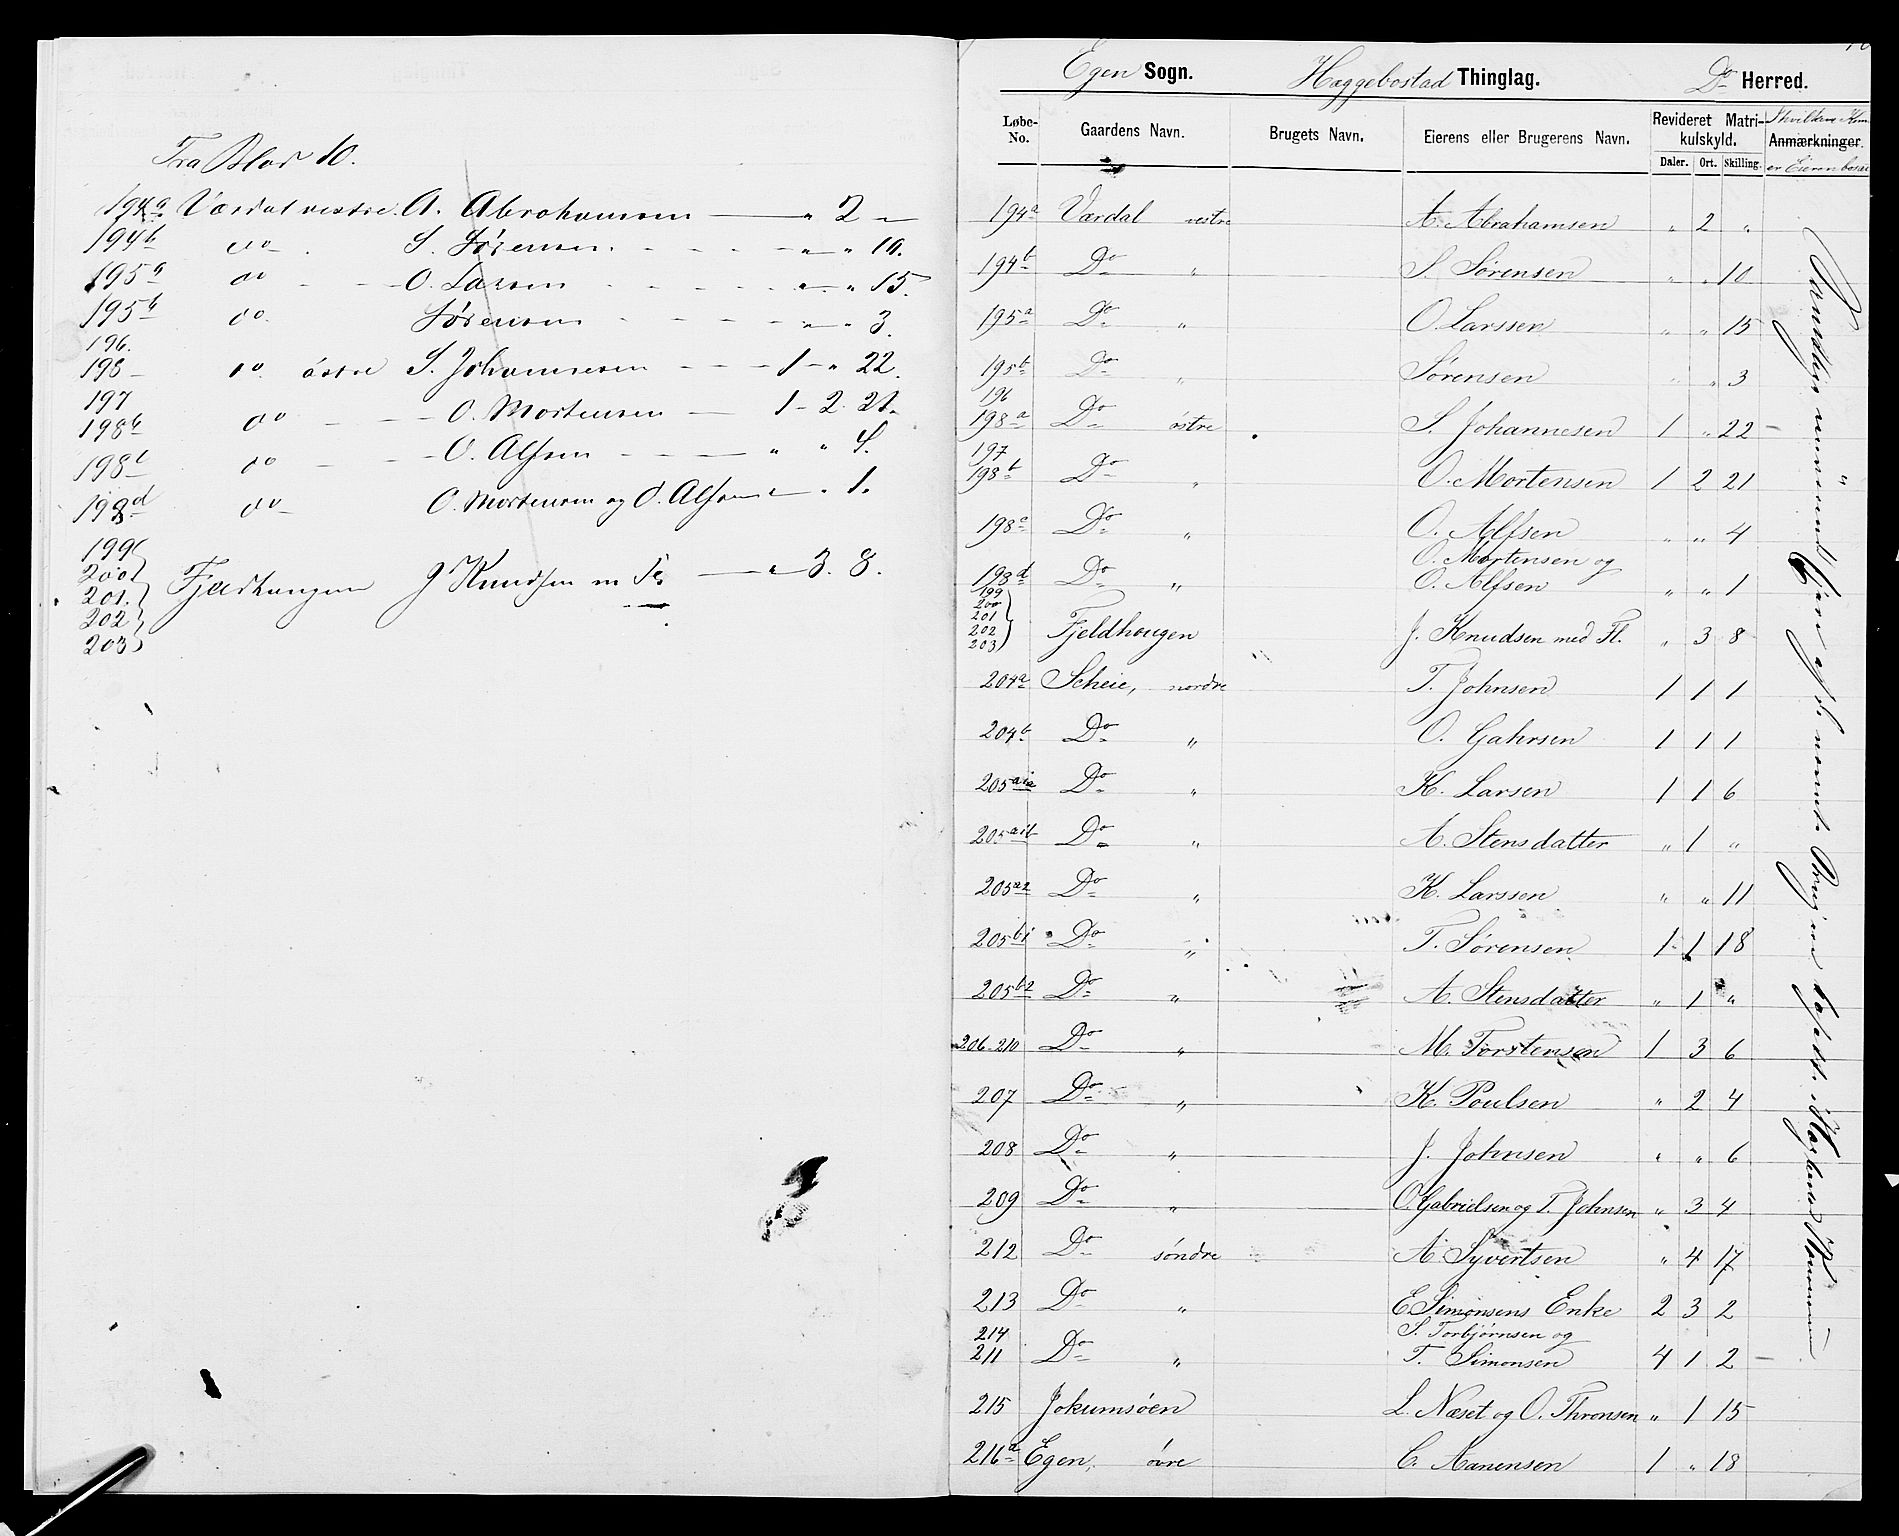 Fra Blad 10.
194a Værdal vestre A. Abrahamsen — " 2 —
194b do S. Sørensen " " 10.
195a do O. Larsen " " 15.
195b do. Sørensen " " 3.
196.
198 do. østre S. Johannesen 1 " 22.
197
198b do O. Mortensen 1 2. 21.
198 do O. Alfsen " " 4.
198d do O. Mortensen og O. Alfsen " 1.
199
200
201. Fjeldhaugen J Knudsen m Fl. " 3. 8.
202
203
Egen Sogn. Hæggebostad Thinglag. Do Herred.
Løbe-No. Gaardens Navn. Brugets Navn. Eierens eller Brugerens Navn. Revideret Matrikulskyld. Daler. Ort. Skilling. Anmærkninger.
I hvilken Kom.
er Eieren bosat
194a Værdal vestre A. Abrahamsen " 2 "
194b Do " S. Sørensen " " 10
195a Do " O. Larssen " " 15
195b Do " Sørensen " " 3
196
198a Do østre S. Johannesen 1 " 22
197
198b Do " O. Mortensen 1 2 21
198c Do " O. Alfsen " " 4
O. Mortensen og
198d Do " O. Alfsen " " 1
199
200
201
202 Fjeldhougen J. Knudsen med Fl. " 3 8
203
204a Scheie, nordre T. Johnsen 1 1 1
204b Do " O. Gahrsen 1 1 1
205a1a Do " K. Larsen 1 1 6
205a1b Do " A. Stensdatter " 1 "
205a2 Do " K. Larssen " " 11
205b1 Do " T. Sørensen 1 1 18
205b2 Do " A. Stensdatter " 1 "
206-210 Do " M. Torstensen 1 3 6
207 Do " K. Poulsen " 2 4
208 Do " J. Johnsen " " 6
209 Do " O. Gabrielsen og T. Johnsen " 3 4
212 Do søndre A. Syvertsen " 4 17
213 Do " E. Simonsens Enke 2 3 2
214 S. Torbjørnsen og
211 Do " T. Simonsen 4 1 2
215 Jokumsöen L. Næset og O. Thronsen " 1 15
216a Egen, övre C. Aanensen 1 " 18